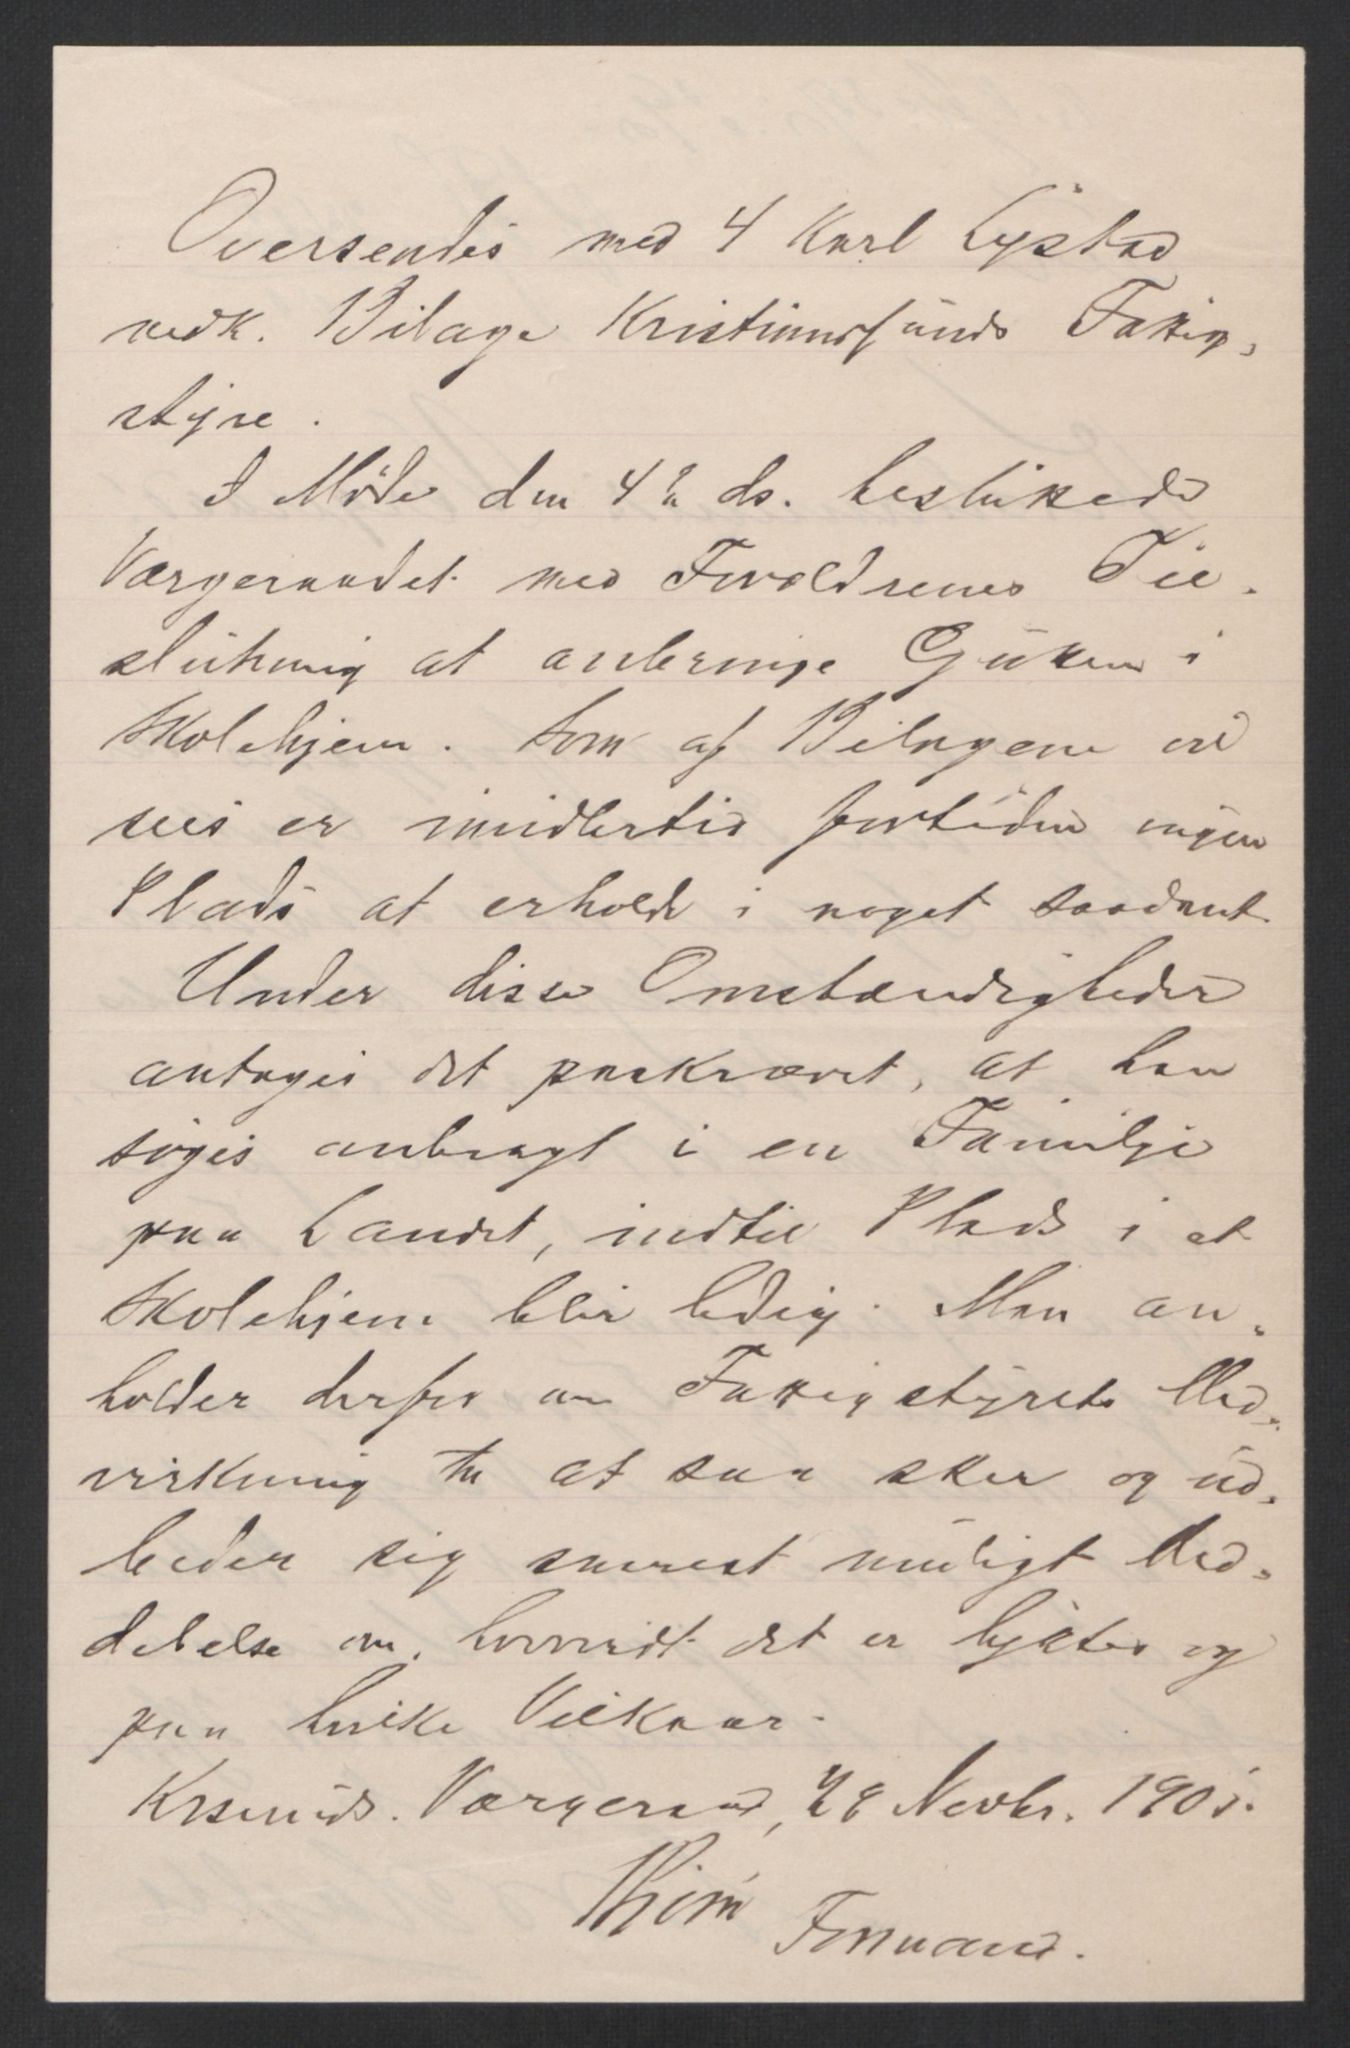 Oversendes med 4 Karl Lystad
vedk. Bilage Kristianssunds Fattig-
styre.
I Møde den 4de ds. besluttede
Værgeraadet med Forældrenes Til-
slutning at anbringe Gutten i
Skolehjem. Som af Bilagene vil
sees er imidlertid fortiden ingen
Plads at erholde i noget saadant.
Under disse Omstændigheder
antages det paakrævet, at han
søges anbragt i en Familje
paa Landet, indtil Plads i et
Skolehjem blir ledig. Man an-
holder derfor om Fattigstyrets Med-
virkning til at saa sker og ud-
beder sig snarest muligt Med-
delelse om, hvorvidt det er lykkes og
paa hvilke Vilkaar.
Krsunds. Værgeraad, Novbr. 1905.
Formand.